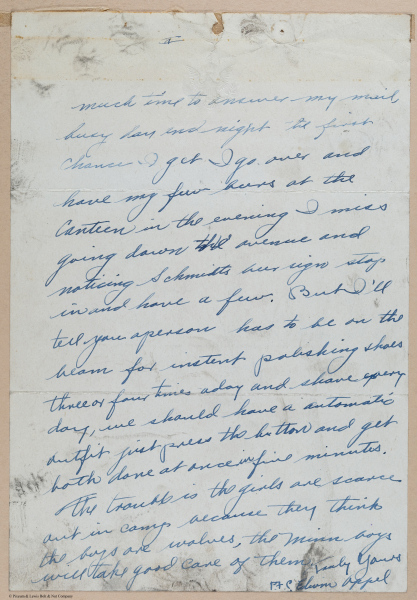 II
much time to answer my mail
busy day and night the first
chance I get I go over and
have my few beers at the
Canteen in the evening I miss
going down the avenue and
noticing Schmidts beer sign stop
in and have a few. But I'll
tell you a person has to be on the
beam for instent polishing shoes
three or four times a day and shave every
day, we should have a automatic
outfit just press the button and get
both done at once in five minutes.
The trouble is the girls are scarce
out in camp because they think
the boys are wolves, the Minn boys
will take good care of them. Truly Yours
Appel